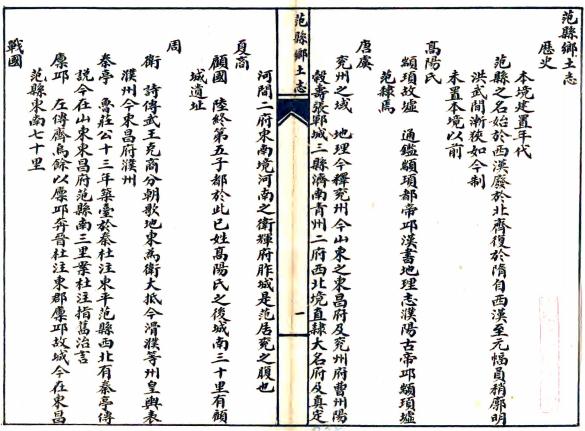 范縣鄉土志
歷史
本境建置年代
范縣之名始於西漢廢於北齊復於隋自西漢至元幅員稍廓明
洪武間漸狹如今制
未置本境以前
高陽氏
顓頊故墟 通鑑顓頊都帝邱漢書地理志濮陽古帝邱顓頊墟
范隸焉
唐虞
兗州之域 地理今釋兗州今山東之東昌府及兗州府曹州陽
穀壽張鄆城三縣濟南青州二府西北境直隸大名府及真定
范縣鄉土志
一
河間二府東南境河南之衛輝府胙城是范居兗之腹也
夏商
顧國 陸終第五子都於此已姓高陽氏之後城南三十里有顧
城遺址
周
衛 詩傳武王克商分朝歌地東為衛大抵今滑濮等州皇輿表
濮州今東昌府濮州
秦亭 魯莊公十三年築臺於秦杜注東平范縣西北有秦亭傳
說今在山東東昌府范縣南三里業杜注指舊治言
廩邱 左傳齊烏餘以廩邱奔晉杜注東郡廩邱故城今在東昌
范縣東南七十里
戰國